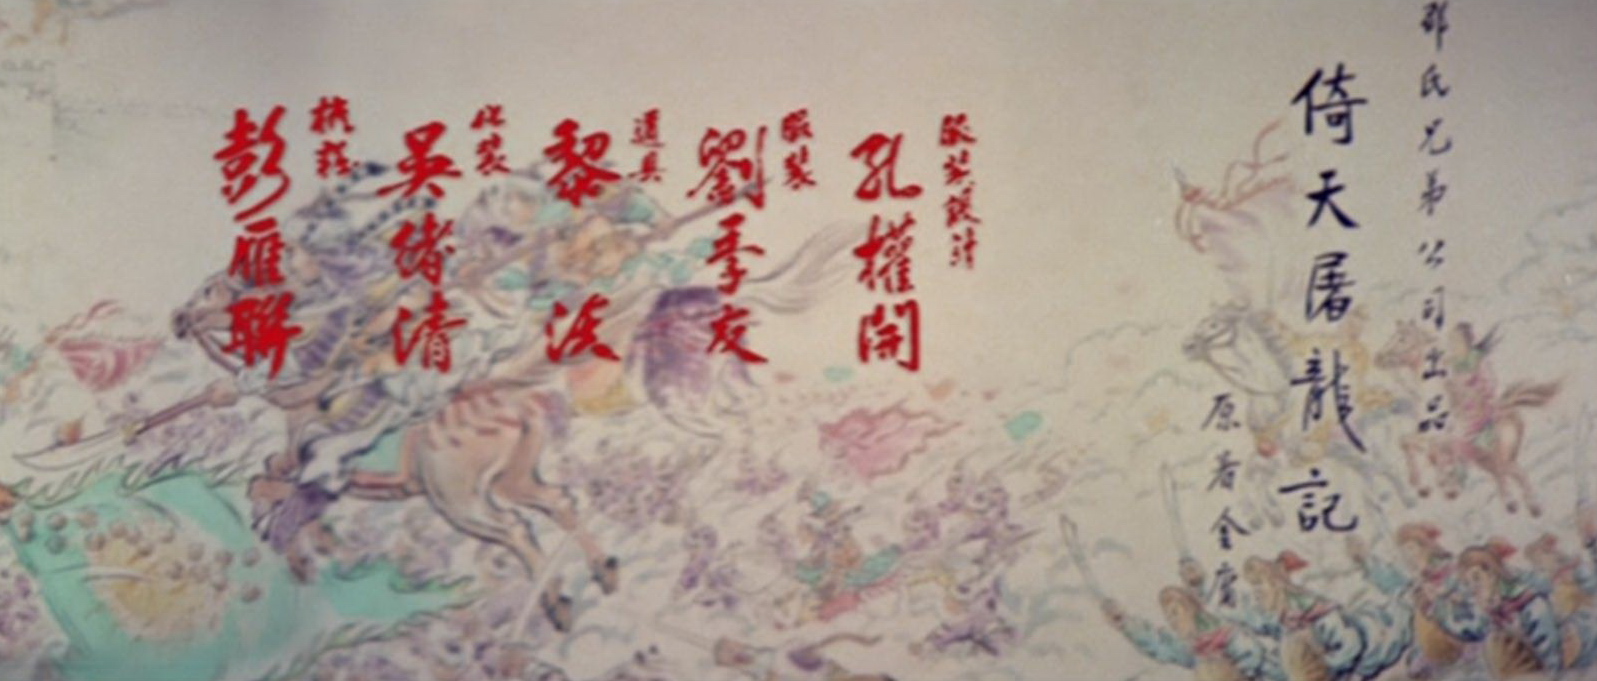 邵氏兄弟公司出品
倚天屠龍記
原著金庸
服裝設計
孔權開
服裝
劉季友
道具
黎淡
化裝
吳緒清
梳頭
彭雁聯